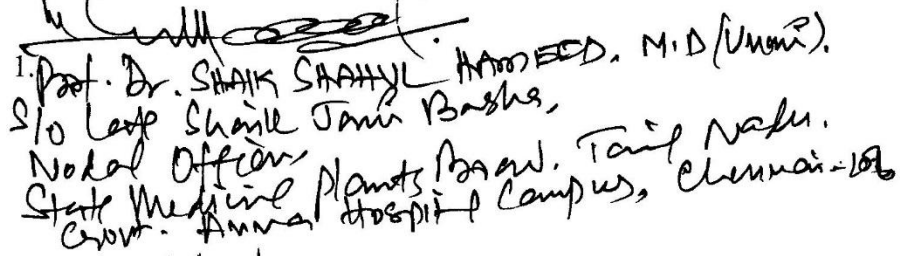 1. Prof. Dr. SHAIK SHAHUL HAMEED. M.D (Unani).
S/o Late Shaik Jani Basha,
Nodal Officer,
State Medicine Plants Board. Tamil Nadu.
Govt. Anna Hospital Campus, Chennai-106